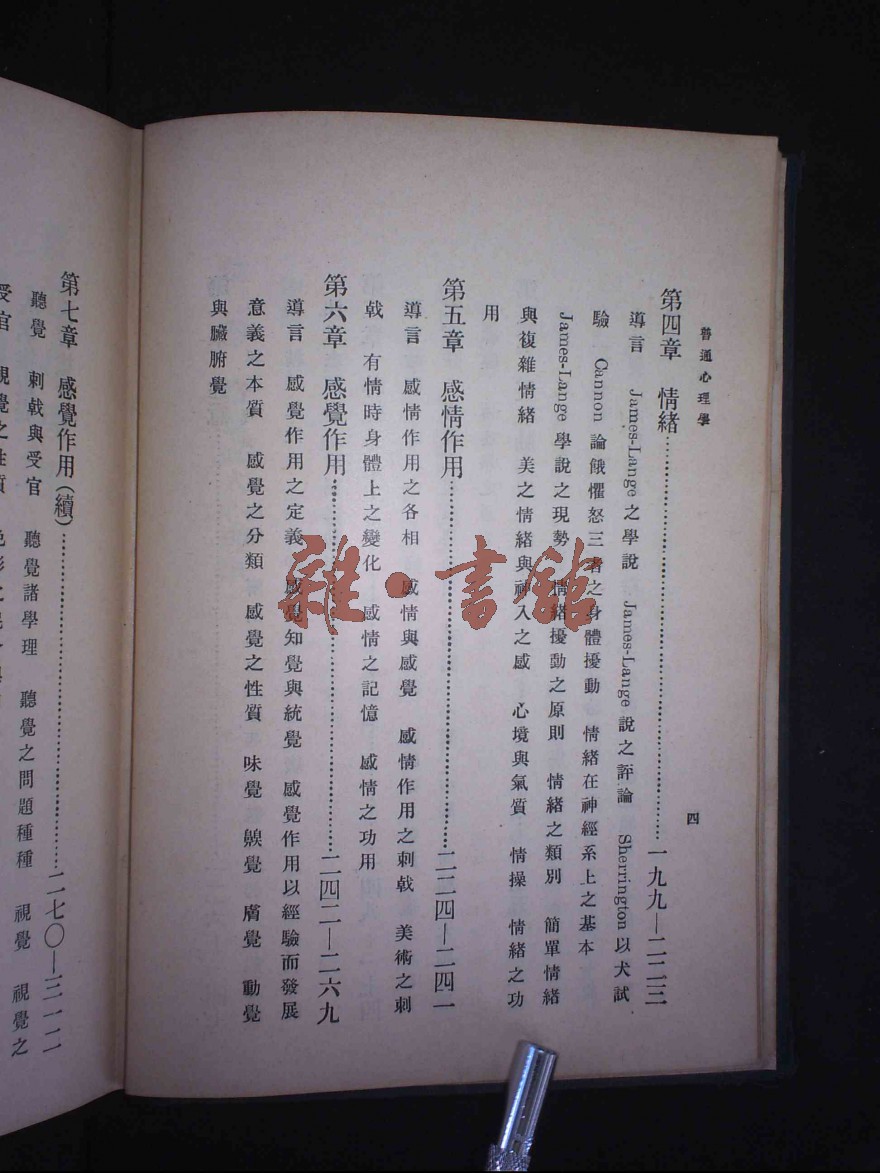 普通心理學
四
第四章 情緒……一九九—二二三
導言 James-Lange之學說 James-Lange說之評論 Sherrington以犬試
驗 Cannon論餓懼怒三者之身體擾動 情緒在神經系上之基本
James-Lange學說之現勢 情緒擾動之原則 情緒之類別 簡單情緒
與複雜情緒 美之情緒與神入之感 心境與氣質 情操 情緒之功
用
第五章 感情作用……二二四—二四一
導言 感情作用之各相 感情與感覺 感情作用之刺戟 美術之刺
戟 有情時身體上之變化 感情之記憶 感情之功用
第六章 感覺作用……二四二—二六九
導言 感覺作用之定義 感覺知覺與統覺 感覺作用以經驗而發展
意義之本質 感覺之分類 感覺之性質 味覺 嗅覺 膚覺 動覺
與臟腑覺
第七章 感覺作用(續)……二七〇—三一二
聽覺 刺戟與受官 聽覺諸學理 聽覺之問題種種 視覺 視覺之
受官 視覺之性質
雜·書館